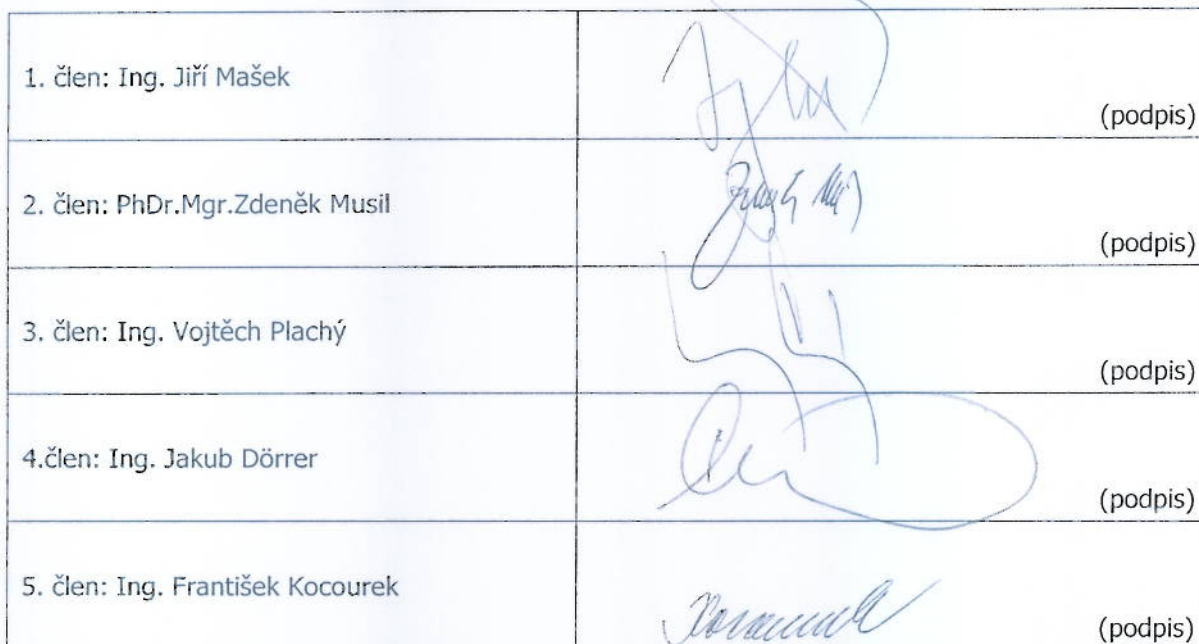 1. člen: Ing. Jiří Mašek
(podpis)
2. člen: PhDr.Mgr.Zdeněk Musil
(podpis)
3. člen: Ing. Vojtěch Plachý
(podpis)
4.člen: Ing. Jakub Dörrer
(podpis)
5. člen: Ing. František Kocourek
(podpis)